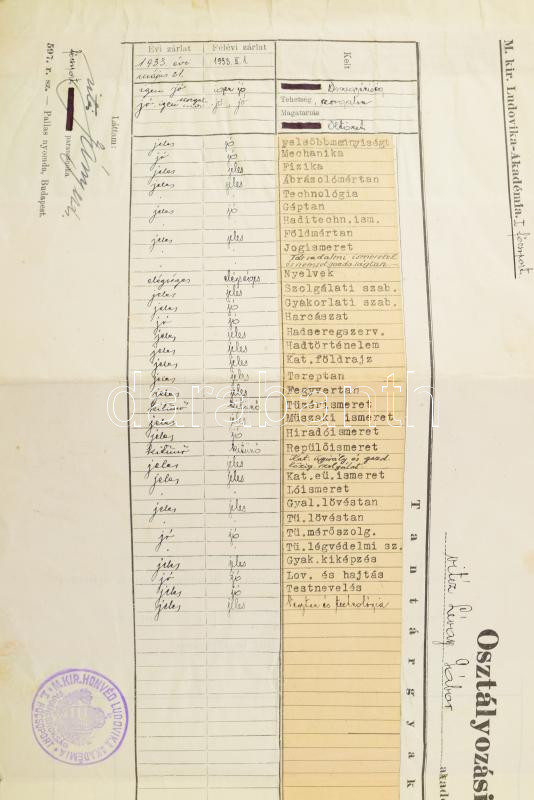 M. kir. Ludovika-Akadémia. I főcsoport.
Osztályozási
vitéz Lévay Gábor
akadé
Tantárgyak
Évi zárlat Félévi zárlat Kelt
1933. évi 1933. II. 1.
május 31.
igen jó igen jó
Tehetség, szorgalom
Magatartás
jeles jó Felsőbbmennyiségt
jó jó Mechanika
jeles jeles Fizika
jeles jeles Ábrázolómértan
Technológia
jeles jó Géptan
Haditechn.ism.
Földmértan
jeles jeles Jogismeret
Társadalmi ismeretek
és nemzetgazdaságtan
elégséges elégséges Nyelvek
jeles jeles Szolgálati szab.
jeles jó Gyakorlati szab.
jó jó Harcászat
jeles jeles Hadseregszerv.
jeles jeles Hadtörténelem
jeles jeles Kat.földrajz
jeles jeles Tereptan
jeles jeles Fegyvertan
kitünő kitünő Tüzérismeret
jeles jeles Müszaki ismeret
jeles jó Hiradóismeret
kitünő kitünő Repülőismeret
jeles jeles
jeles jeles Kat.eü.ismeret
Lóismeret
jeles jeles Gyal.lövéstan
Tü.lövéstan
jó jó Tü.mérőszolg.
Tü.légvédelmi sz.
jeles jeles Gyak.kiképzés
jó jó Lov. és hajtás
jeles jeles Testnevelés
jeles jeles Vegytan és technológia
Láttam:
vitéz
parancsnoka
597. r. sz. — Pallas nyomda, Budapest
M. KIR. HONVÉD LUDOVIKA AKADÉMIA
I. FŐCSOPORT
darabanth